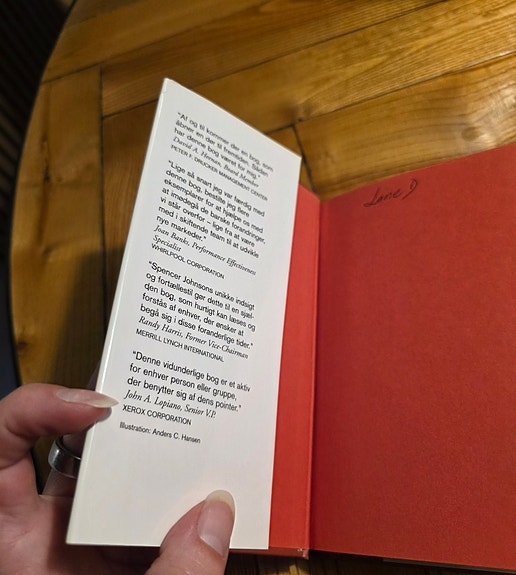 "Af og til kommer der en bog, som
åbner en dør til fremtiden. Sådan
har denne bog været for mig."
David A. Heenan, Board Member
PETER F. DRUCKER MANAGEMENT CENTER
"Lige så snart jeg var færdig med
denne bog, bestilte jeg flere
eksemplarer for at hjælpe os med
at imødegå de barske forandringer,
vi står overfor – lige fra at være
med i skiftende team til at udvikle
nye markeder."
Joan Banks, Performance Effectiveness
Specialist
WHIRLPOOL CORPORATION
"Spencer Johnsons unikke indsigt
og fortællestil gør dette til en sjæl-
den bog, som hurtigt kan læses og
forstås af enhver, der ønsker at
begå sig i disse foranderlige tider."
Randy Harris, Former Vice-Chairman
MERRILL LYNCH INTERNATIONAL
"Denne vidunderlige bog er et aktiv
for enhver person eller gruppe,
der benytter sig af dens pointer."
John A. Lopiano, Senior V.P.
XEROX CORPORATION
Illustration: Anders C. Hansen